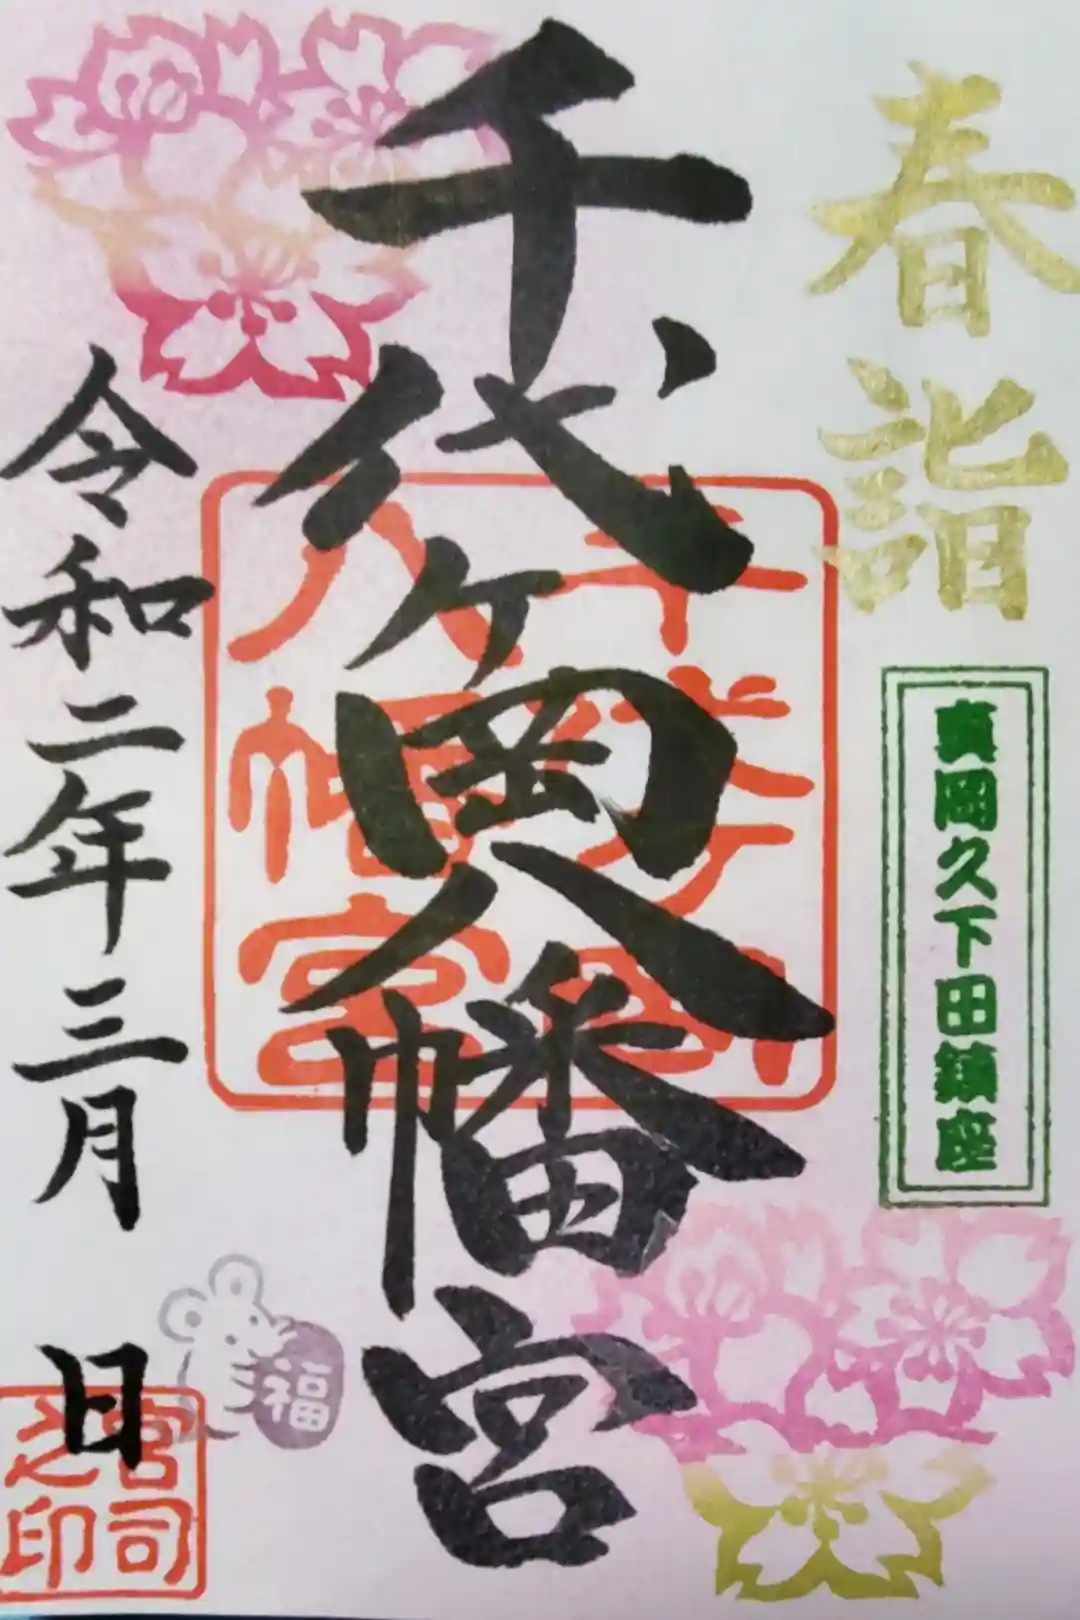 春詣
真岡久下田鎮座
千代ヶ岡八幡宮
千代ヶ岡
八幡宮
令和二年三月 日
福
宮司
之印